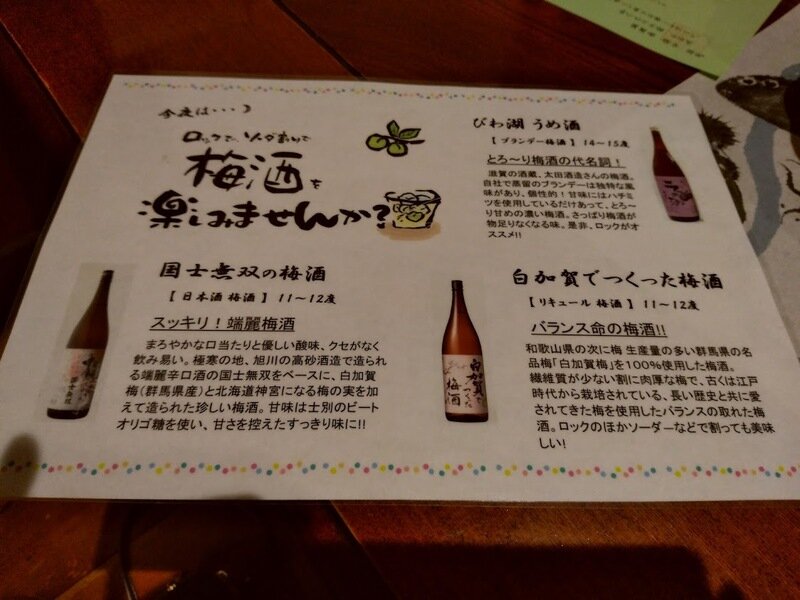 今度は・・・
ロックで、ソーダわりで
梅酒を
楽しみませんか?
びわ湖 うめ酒
【 ブランデー梅酒 】 14～15度
とろ～り梅酒の代名詞！
滋賀の酒蔵、太田酒造さんの梅酒。
自社で蒸留のブランデーは独特な風
味があり、個性的！甘味にはハチミ
ツを使用しているだけあって、とろ～
り甘めの濃い梅酒。さっぱり梅酒が
物足りなくなる味。是非、ロックがオ
ススメ!!
国士無双の梅酒
【 日本酒 梅酒 】 11～12度
スッキリ！端麗梅酒
まろやかな口当たりと優しい酸味、クセがなく
飲み易い。極寒の地、旭川の高砂酒造で造られ
る端麗辛口酒の国士無双をベースに、白加賀
梅（群馬県産）と北海道神宮になる梅の実を加
えて造られた珍しい梅酒。甘味は士別のビート
オリゴ糖を使い、甘さを控えたすっきり味に!!
白加賀でつくった梅酒
【 リキュール 梅酒 】 11～12度
バランス命の梅酒!!
和歌山県の次に梅 生産量の多い群馬県の名
品梅「白加賀梅」を100%使用した梅酒。
繊維質が少ない割に肉厚な梅で、古くは江戸
時代から栽培されている、長い歴史と共に愛
されてきた梅を使用したバランスの取れた梅
酒。ロックのほかソーダーなどで割っても美味
しい!
白加賀で
つくった
梅酒